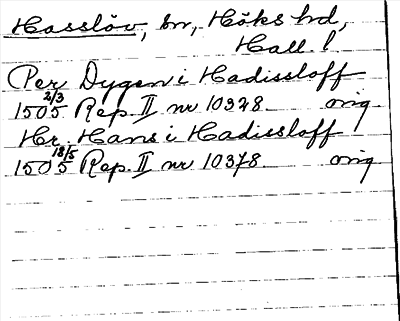 Hasslöv, sn, Höks hd,
Hall. l.
Per Dygen i Hadissloff
1505 2/3 Rep. II nr 10328 orig
Hr. Hans i Hadissloff
1505 18/5 Rep. II nr 10378 orig